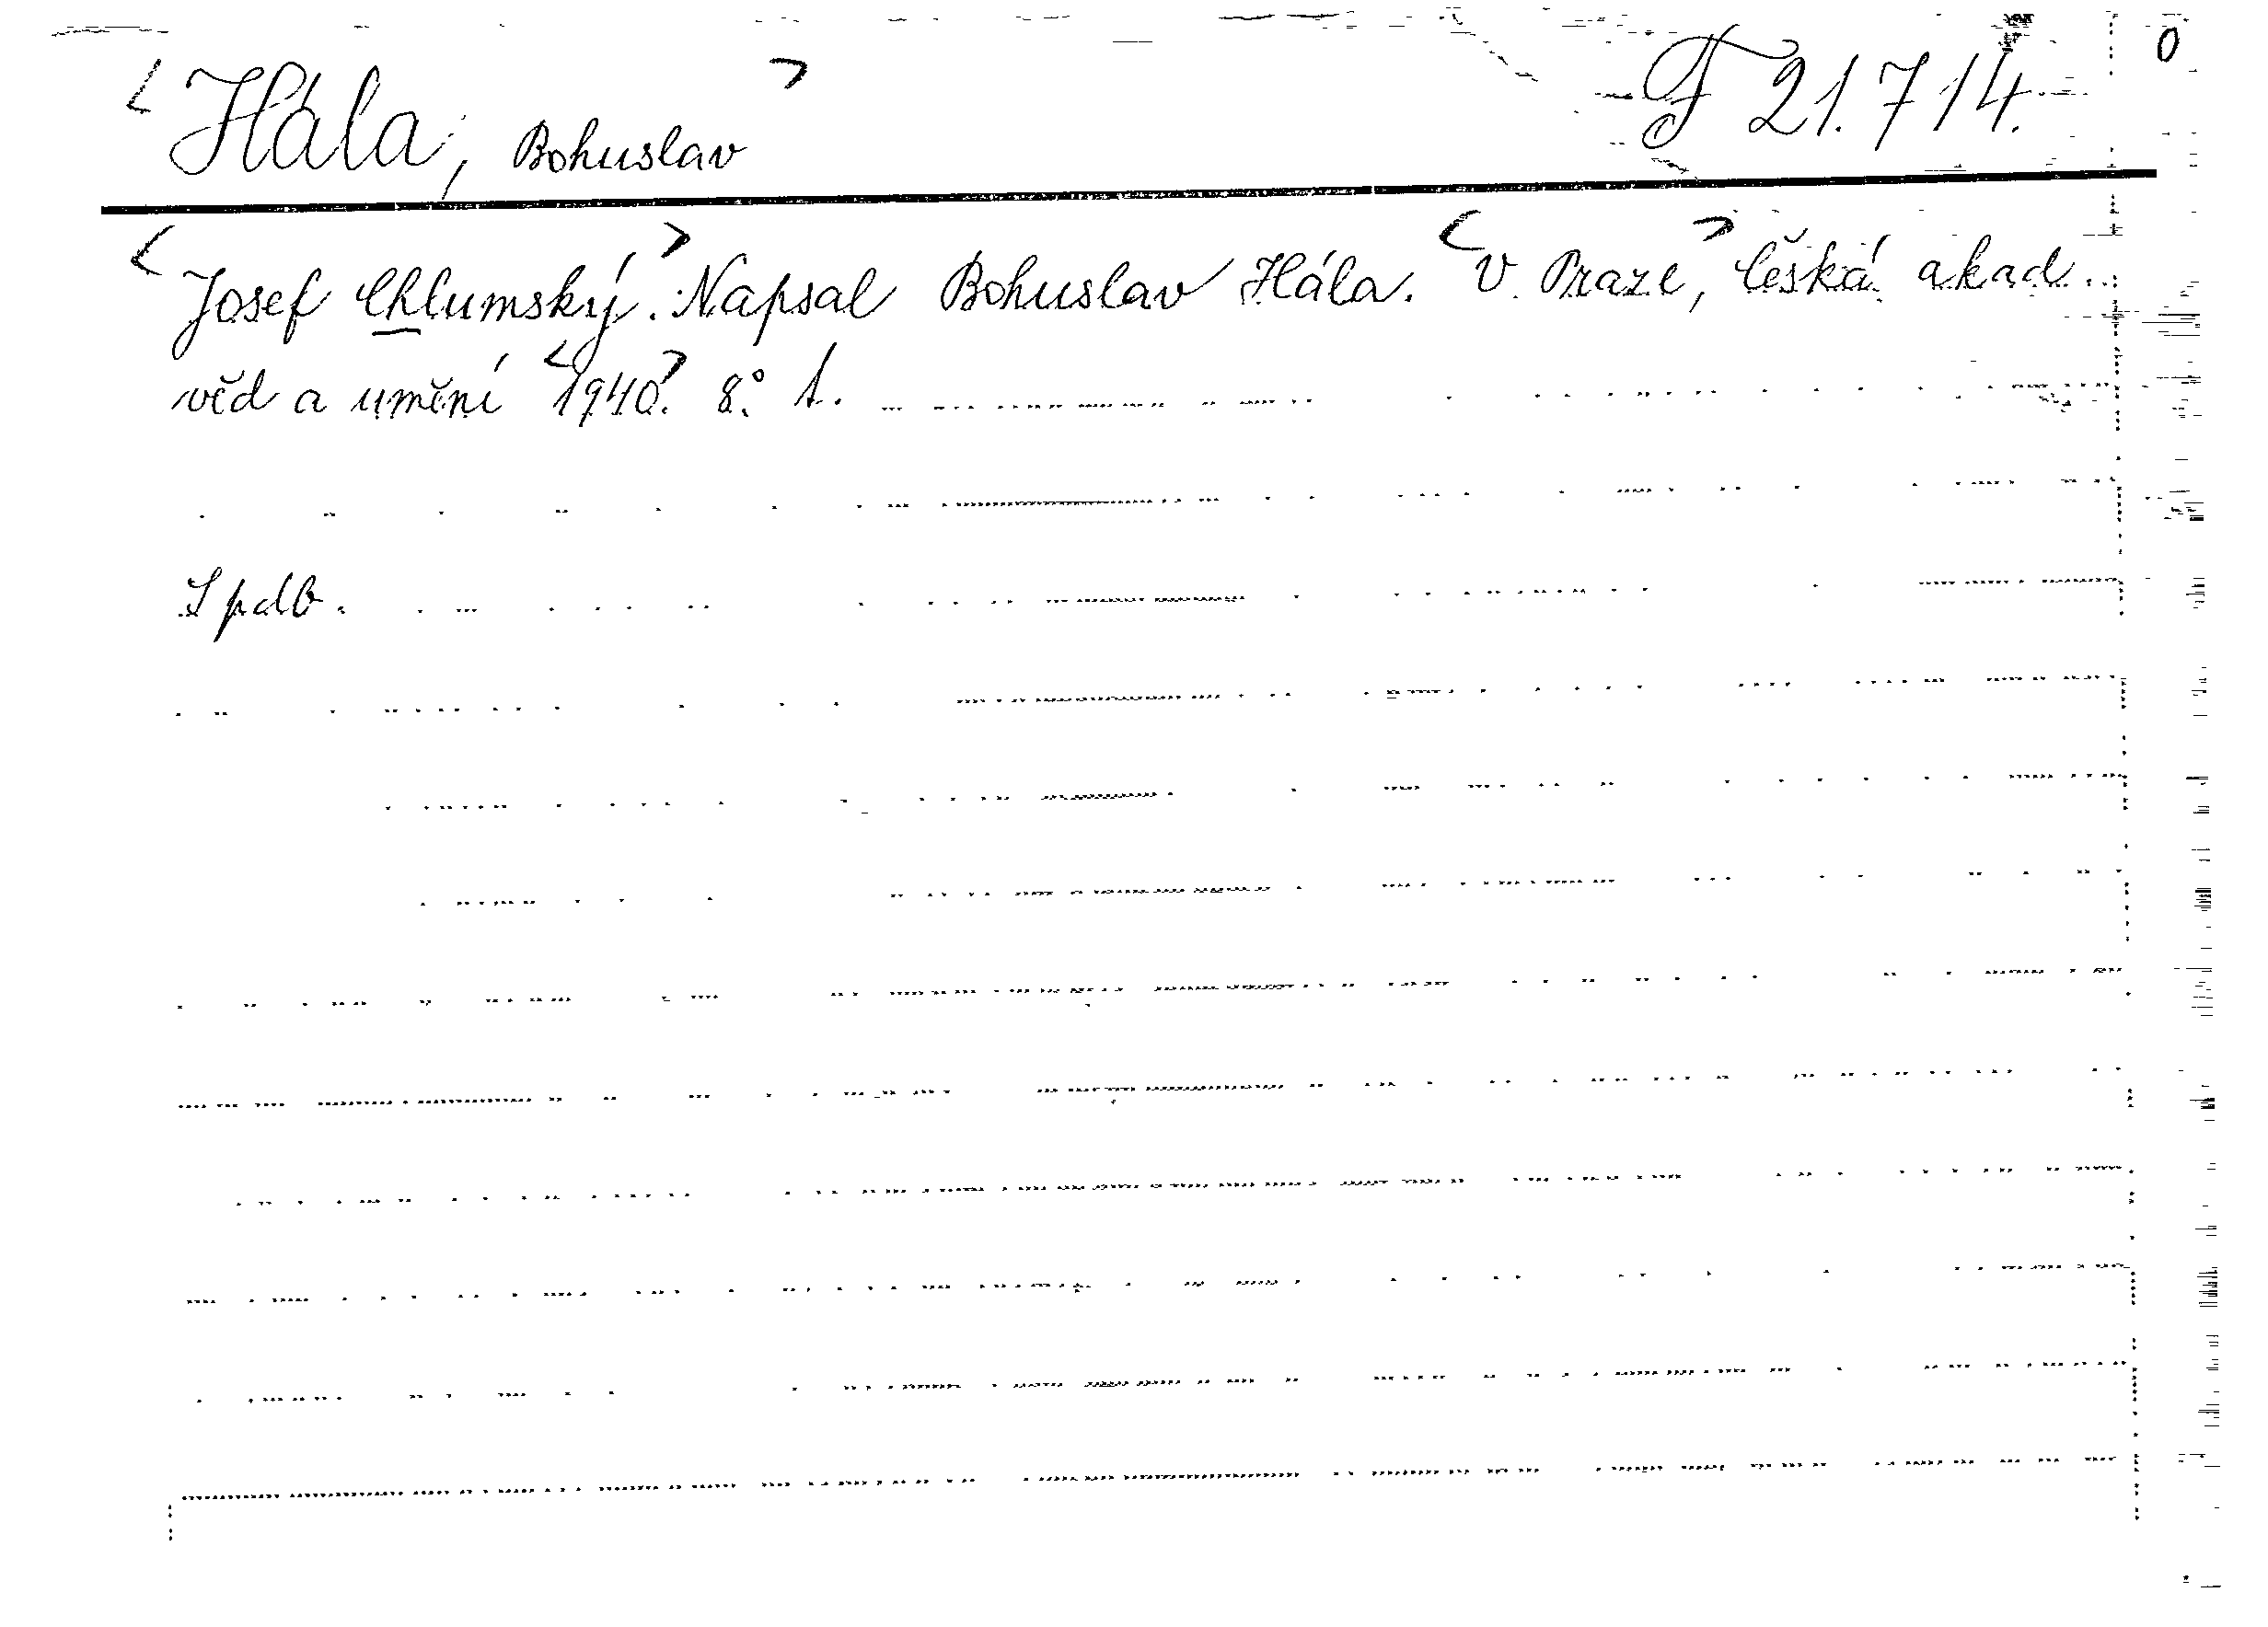 <Hála, Bohuslav> F 21.714. 0
<Josef Chlumský.> Napsal Bohuslav Hála. <V Praze,> Česká akad.
věd a umění <1940>. 8.° 1.
S pdb.